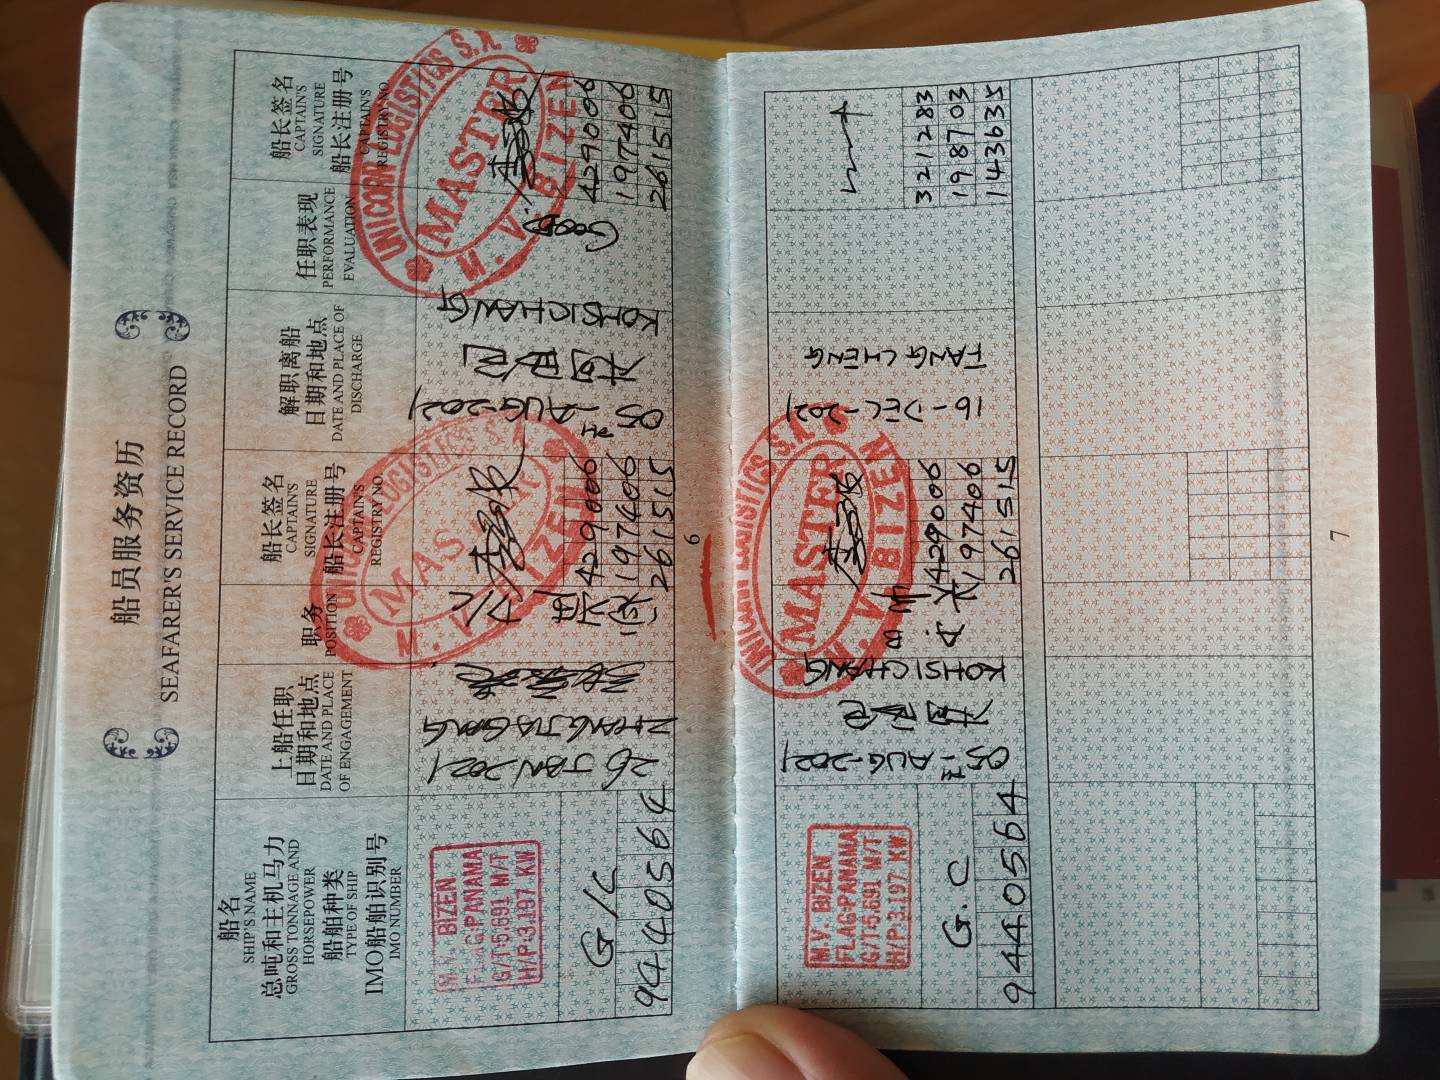 船员服务资历
SEAFARER'S SERVICE RECORD
船名
SHIP'S NAME
总吨和主机马力
GROSS TONNAGE AND
HORSEPOWER
船舶种类
TYPE OF SHIP
IMO船舶识别号
IMO NUMBER
上船任职
日期和地点
DATE AND PLACE
OF ENGAGEMENT
职务
POSITION
船长签名
CAPTAIN'S
SIGNATURE
船长注册号
CAPTAIN'S
REGISTRY NO
解职离船
日期和地点
DATE AND PLACE OF
DISCHARGE
任职表现
PERFORMANCE
EVALUATION
船长签名
CAPTAIN'S
SIGNATURE
船长注册号
CAPTAIN'S
REGISTRY NO
M.V. BIZEN
FLAG:PANAMA
G/T:5.691 M/T
H/P:3.197 KW
G/C
9440564
26 JAN 2021
ZHANGJIAGANG
UNICORN LOGISTICS S.A.
MASTER
M.V. BIZEN
429006
197406
261515
05
AUG-2021
KOHSICHANG
GOOD
UNICORN LOGISTICS S.A.
MASTER
M.V. BIZEN
429006
197406
261515
6
M.V. BIZEN
FLAG:PANAMA
G/T:5.691 M/T
H/P:3.197 KW
G.C
9440564
05
AUG-2021
KOHSICHANG
UNICORN LOGISTICS S.A.
MASTER
M.V. BIZEN
429006
197406
261515
16-DEC-2021
FANGCHENG
321283
198703
143635
7